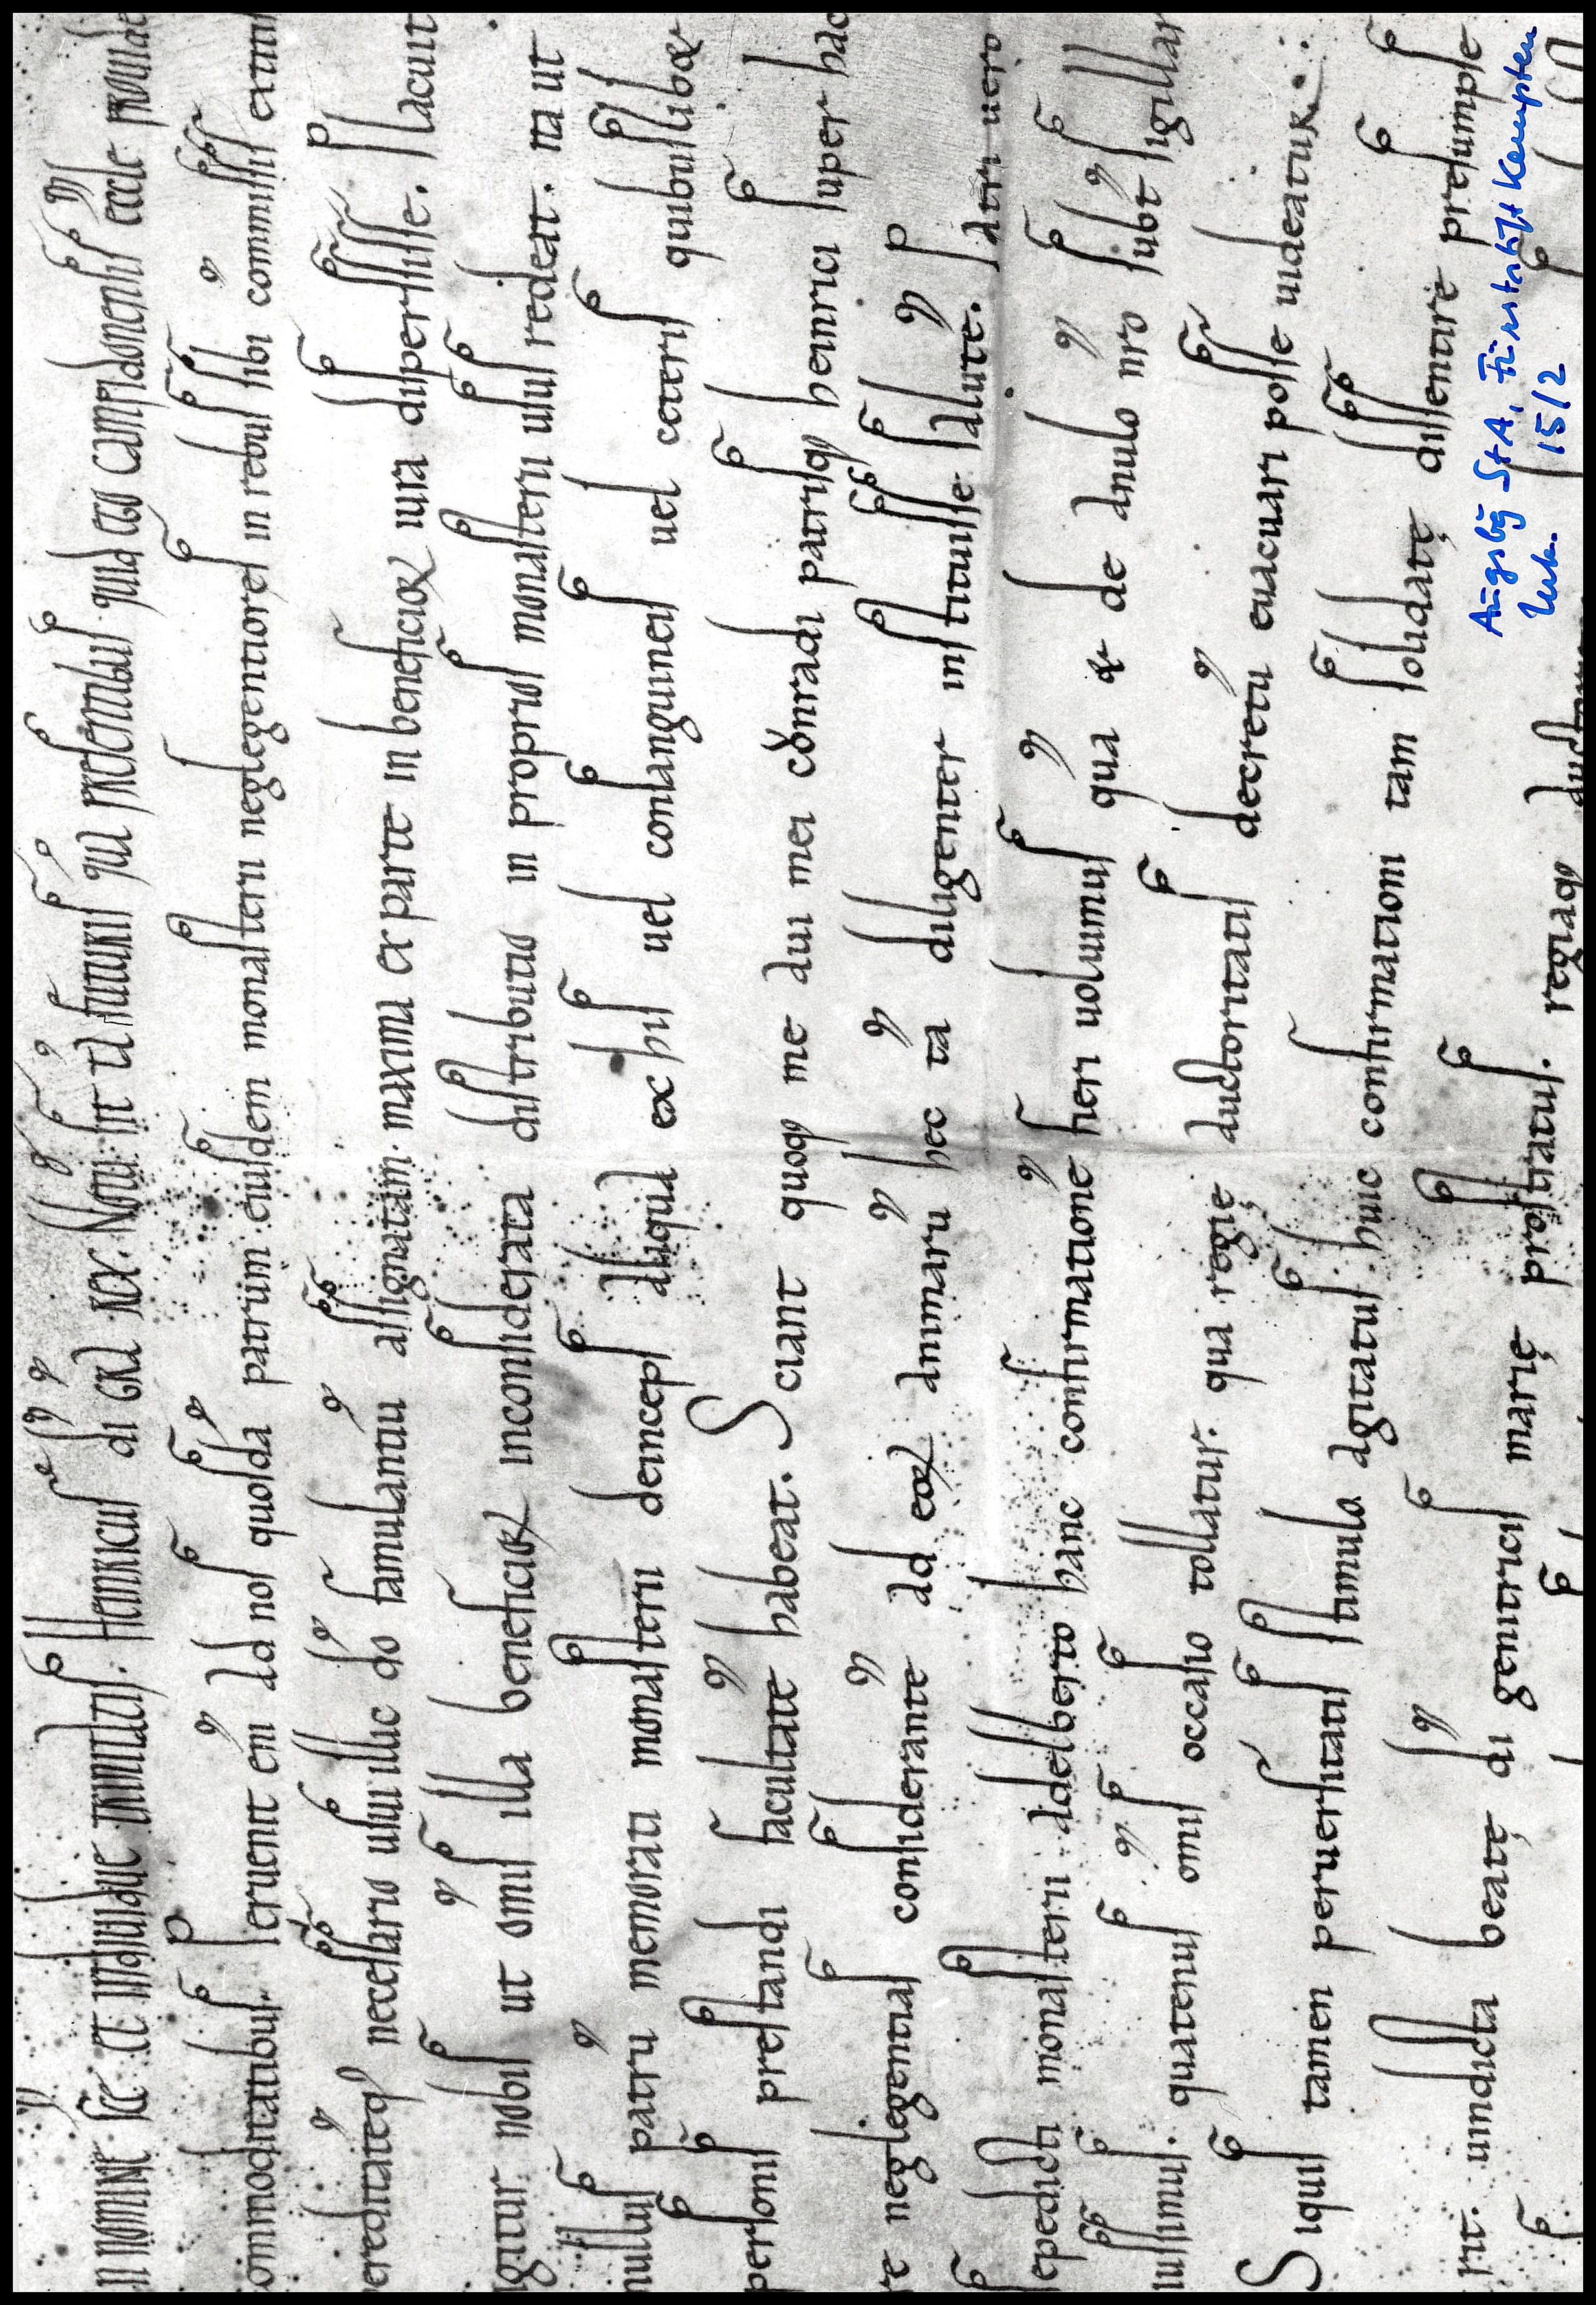 in nomine sce et individue trinitatis. Heinricus di gra rex. Notu sit ta futuris qua presentibus quia cu campidonensis eccle provide
ommoditatibus. seruenit em ad nos quosda patrum eiusdem monasterii neglegentiores in rebus sibi commissis
ereditateq necessario usui illic do famulantiu assignatam. maxima ex parte in beneficior iura dispersisse. placuit
igitur nobis ut omis illa beneficior inconsiderata distributio in proprios monasterii usus redeat. ita ut
nullus patru memorati monasterii deinceps aliquid ex his uel consanguineis uel ceteris quibuslib&
personis prestandi facultate habeat. Sciant quoq me aui mei cōnradi patrisq heinrici super hac
re neglegentias considerante ad eor animaru hec ta diligenter instituisse salute. Patri uero
sepedicti monasterii adelberto hanc confirmatione fieri uolumus qua & de anulo nro subt sigillari
iussimus. quatenus omis occasio tollatur. qua regie auctoritatis decretu euacuari posse uideatur.
Siquis tamen peruersitatis stimulo agitatus huic confirmationi tam solidate dissentire presumpse
rit. uindicta beate di genitricis marie prostratus. regiaq
Augsbg StA, Fürststift Kempten
Urk. 15/2